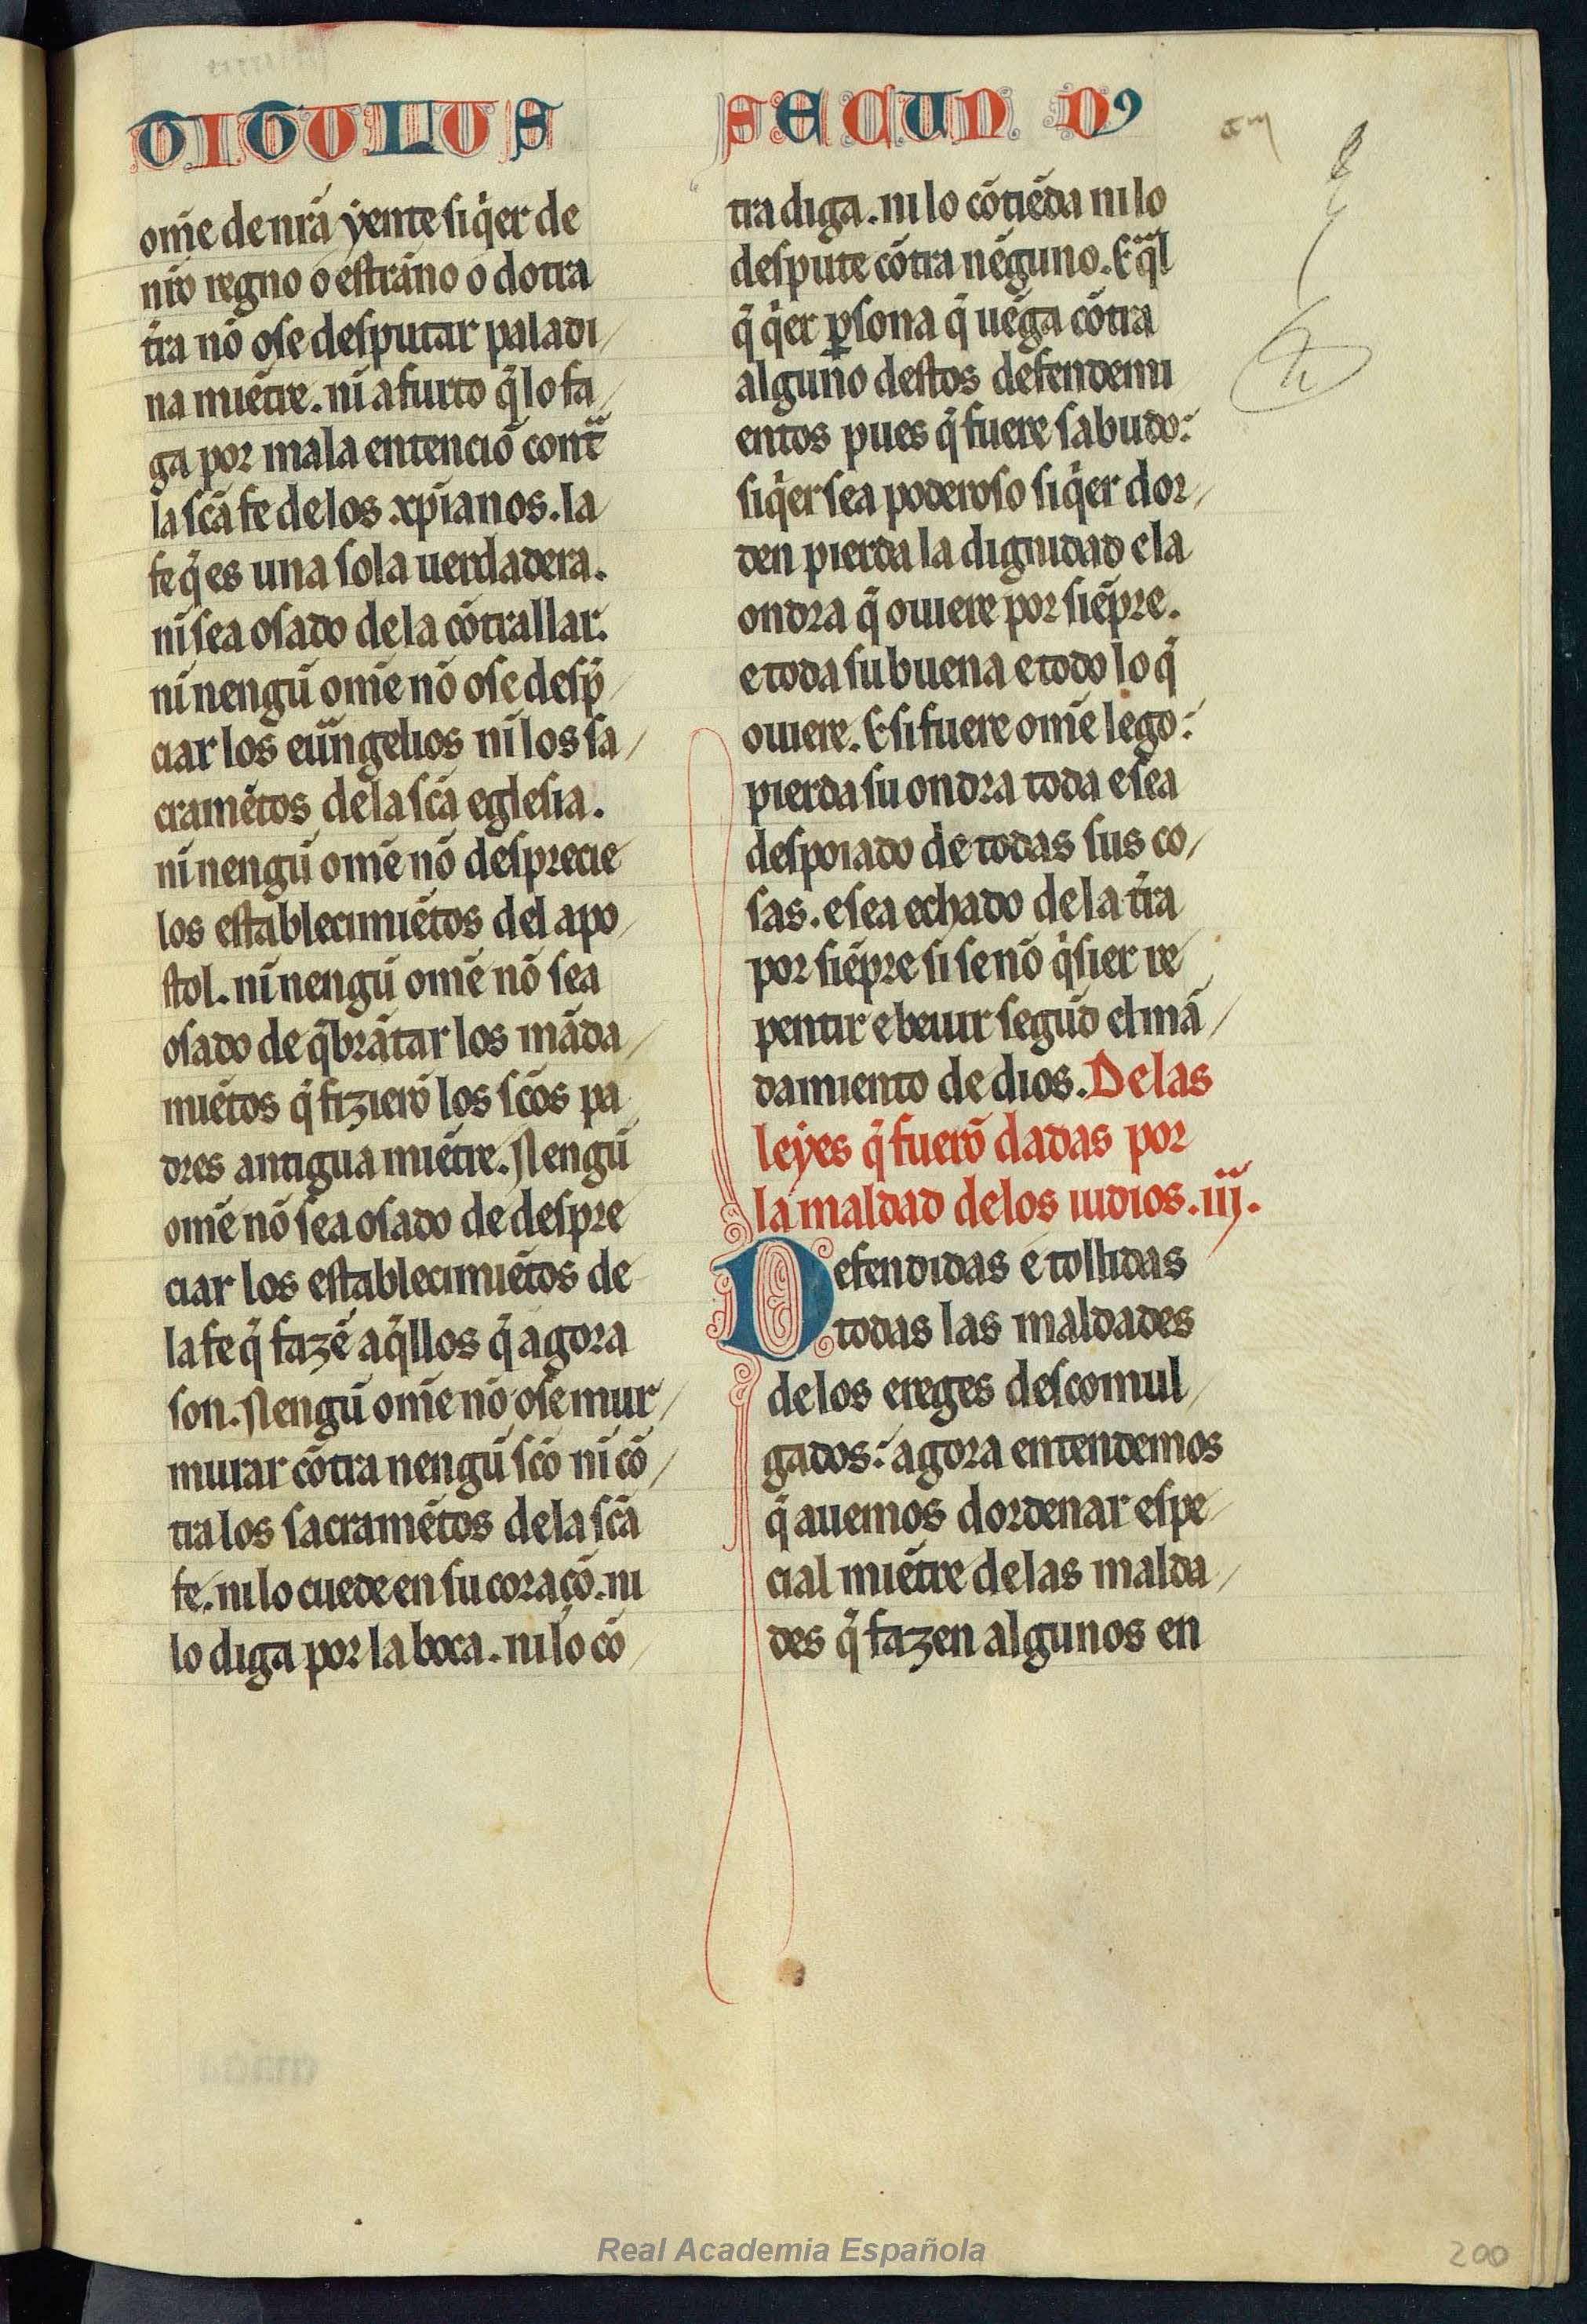 TITULUS
SECUNDꝰ
om̃e de nr̃a yente siq̇er de
nr̃o regno o estrãno o dotra
tr̃a nõ ose desputar paladi/
na miẽtre. ni a furto q̃ lo fa/
ga por mala entenciõ contᷓ
la sc̃a fe de los xp̃ianos. la
fe q̃ es una sola uerdadera.
ni sea osado de la cõtrallar.
ni nengũ om̃e nõ ose desp̃/
ciar los euᷓngelios ni los sa/
cramẽtos de la sc̃a eglesia.
ni nengũ om̃e nõ desprecie
los establecimiẽtos del apo/
stol. ni nengũ om̃e nõ sea
osado de q̃brãtar los mãda/
miẽtos q̃ fizierõ los sc̃os pa/
dres antigua miẽtre. Nengũ
om̃e nõ sea osado de despre
ciar los establecimiẽtos de
la fe q̃ fazẽ aq̃llos q̃ agora
son. Nengũ om̃e nõ ose mur/
murar cõtra nengũ sc̃o ni cõ/
tra los sacramẽtos de la sc̃a
fe. ni lo cuede en su coraçõ. ni
lo diga por la boca. ni lo cõ/
tra diga. ni lo cõtiẽda ni lo
despute cõtra nẽguno. E qᷓl
q̃ q̇er ꝑsona q̃ uẽga cõtra
alguno destos defendemi
entos pues q̃ fuere sabudo:
siq̇er sea poderoso siq̇er dor/
den pierda la dignidad e la
ondra q̃ ouiere por siẽpre.
e toda su buena e todo lo q̃
ouiere. E si fuere om̃e lego:
pierda su ondra toda e sea
despoiado de todas sus co/
sas. e sea echado de la tr̃a
por siẽpre si se nõ q̇sier re/
pentir e beuir segũd el mã/
damiento de dios. De las
leyes q̃ fuerõ dadas por
la maldad de los iudios. iij.
Defendidas e tollidas
todas las maldades
de los ereges descomul/
gados: agora entendemos
q̃ auemos dordenar espe/
cial miẽtre de las malda/
des q̃ fazen algunos en
Real Academia Española
200